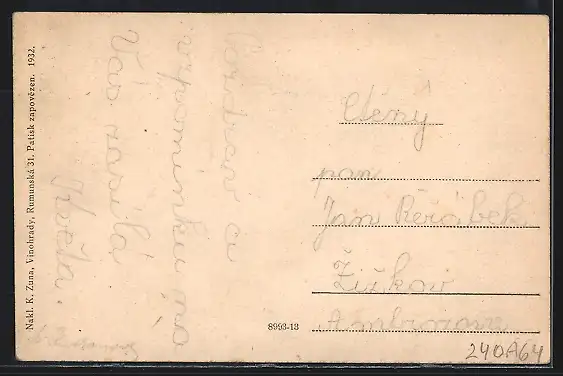 Nakl. K. Zuna, Vinohrady, Rumunská 31. Patisk zapovězen. 1932.
Pozdrav a
vzpomínku na
Vás zasílá
8993-13
Ctěný
pan
Jan Řeřábek
Žižkov
240A64